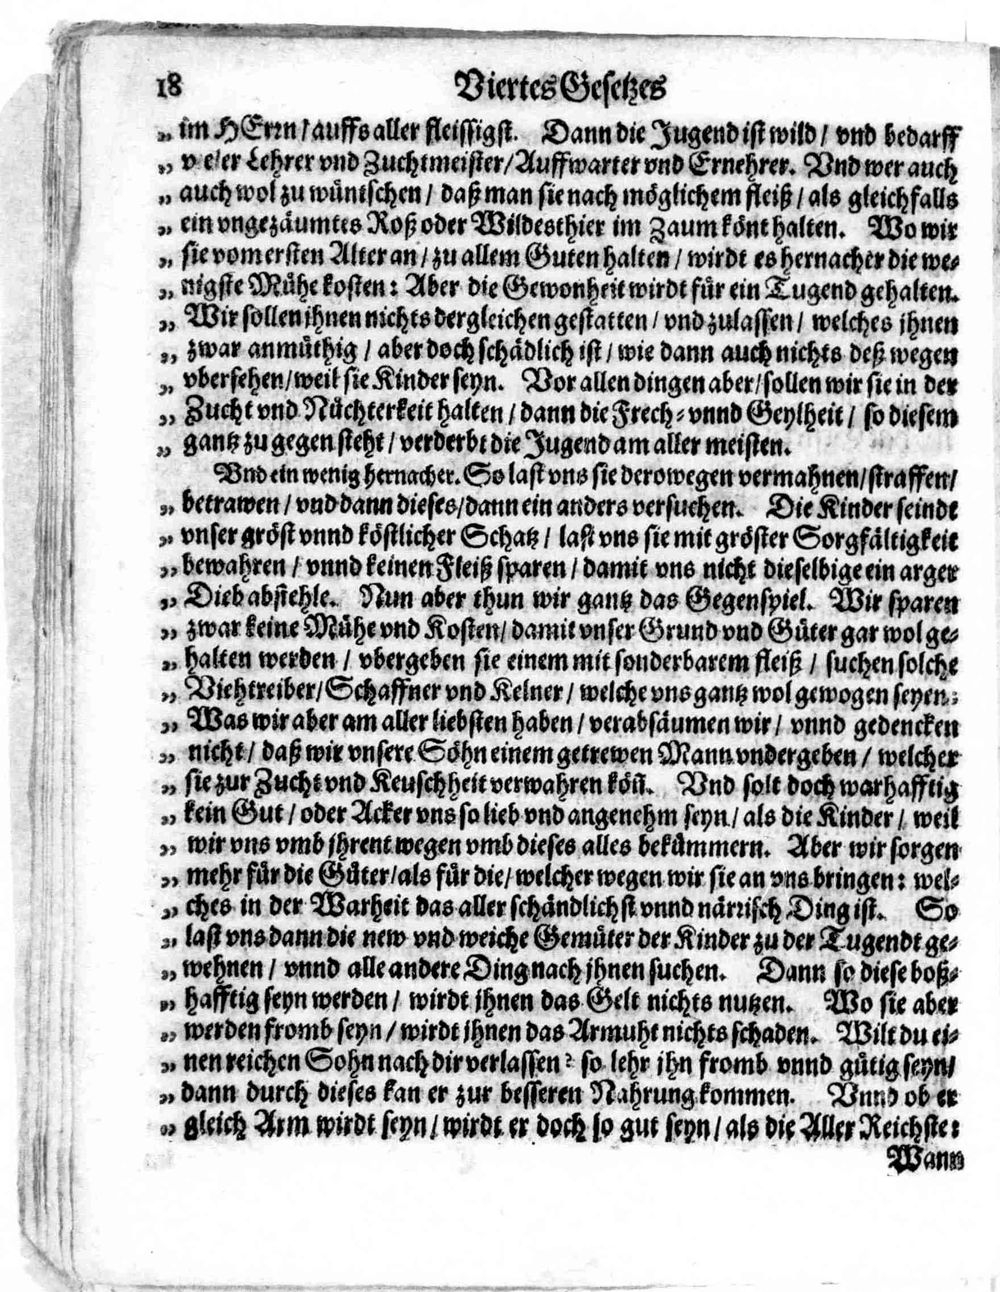 18 Viertes Gesetzes
„ im HErrn / auffs aller fleissigst. Dann die Jugend ist wild / vnd bedarff
„ vieler Lehrer vnd Zuchtmeister / Auffwarter vnd Ernehrer. Vnd wer auch
„ auch wol zu wüntschen / daß man sie nach möglichem fleiß / als gleichfalls
„ ein vngezäumtes Roß oder Wildesthier im Zaum könt halten. Wo wir
„ sie vom ersten Alter an / zu allem Guten halten / wirdt es hernacher die we-
„ nigste Mühe kosten: Aber die Gewonheit wirdt für ein Tugend gehalten.
„ Wir sollen jhnen nichts dergleichen gestatten / vnd zulassen / welches jhnen
„ zwar anmüthig / aber doch schädlich ist / wie dann auch nichts deß wegen
„ vbersehen / weil sie Kinder seyn. Vor allen dingen aber / sollen wir sie in der
„ Zucht vnd Nüchterkeit halten / dann die Frech- vnnd Geylheit / so diesem
„ gantz zu gegen steht / verderbt die Jugend am aller meisten.
Vnd ein wenig hernacher. So last vns sie derowegen vermahnen / straffen /
„ betrawen / vnd dann dieses / dann ein anders versuchen. Die Kinder seindt
„ vnser gröst vnnd köstlicher Schatz / last vns sie mit gröster Sorgfältigkeit
„ bewahren / vnnd keinen Fleiß sparen / damit vns nicht dieselbige ein arger
„ Dieb abstehle. Nun aber thun wir gantz das Gegenspiel. Wir sparen
„ zwar keine Mühe vnd Kosten / damit vnser Grund vnd Güter gar wol ge-
„ halten werden / vbergeben sie einem mit sonderbarem fleiß / suchen solche
„ Viehtreiber / Schaffner vnd Kelner / welche vns gantz wol gewogen seyen:
„ Was wir aber am aller liebsten haben / verabsäumen wir / vnnd gedencken
„ nicht / daß wir vnsere Söhn einem getrewen Mann vndergeben / welcher
„ sie zur Zucht vnd Keuschheit verwahren köñ. Vnd solt doch warhafftig
„ kein Gut / oder Acker vns so lieb vnd angenehm seyn / als die Kinder / weil
„ wir vns vmb jhrent wegen vmb dieses alles bekümmern. Aber wir sorgen
„ mehr für die Güter / als für die / welcher wegen wir sie an vns bringen: wel-
„ ches in der Warheit das aller schändlichst vnnd närrisch Ding ist. So
„ last vns dann die new vnd weiche Gemüter der Kinder zu der Tugendt ge-
„ wehnen / vnnd alle andere Ding nach jhnen suchen. Dann so diese boß-
„ hafftig seyn werden / wirdt jhnen das Gelt nichts nutzen. Wo sie aber
„ werden fromb seyn / wirdt jhnen das Armuht nichts schaden. Wilt du ei-
„ nen reichen Sohn nach dir verlassen? so lehr jhn fromb vnnd gütig seyn /
„ dann durch dieses kan er zur besseren Nahrung kommen. Vnnd ob er
„ gleich Arm wirdt seyn / wirdt er doch so gut seyn / als die Aller Reichste:
Wann